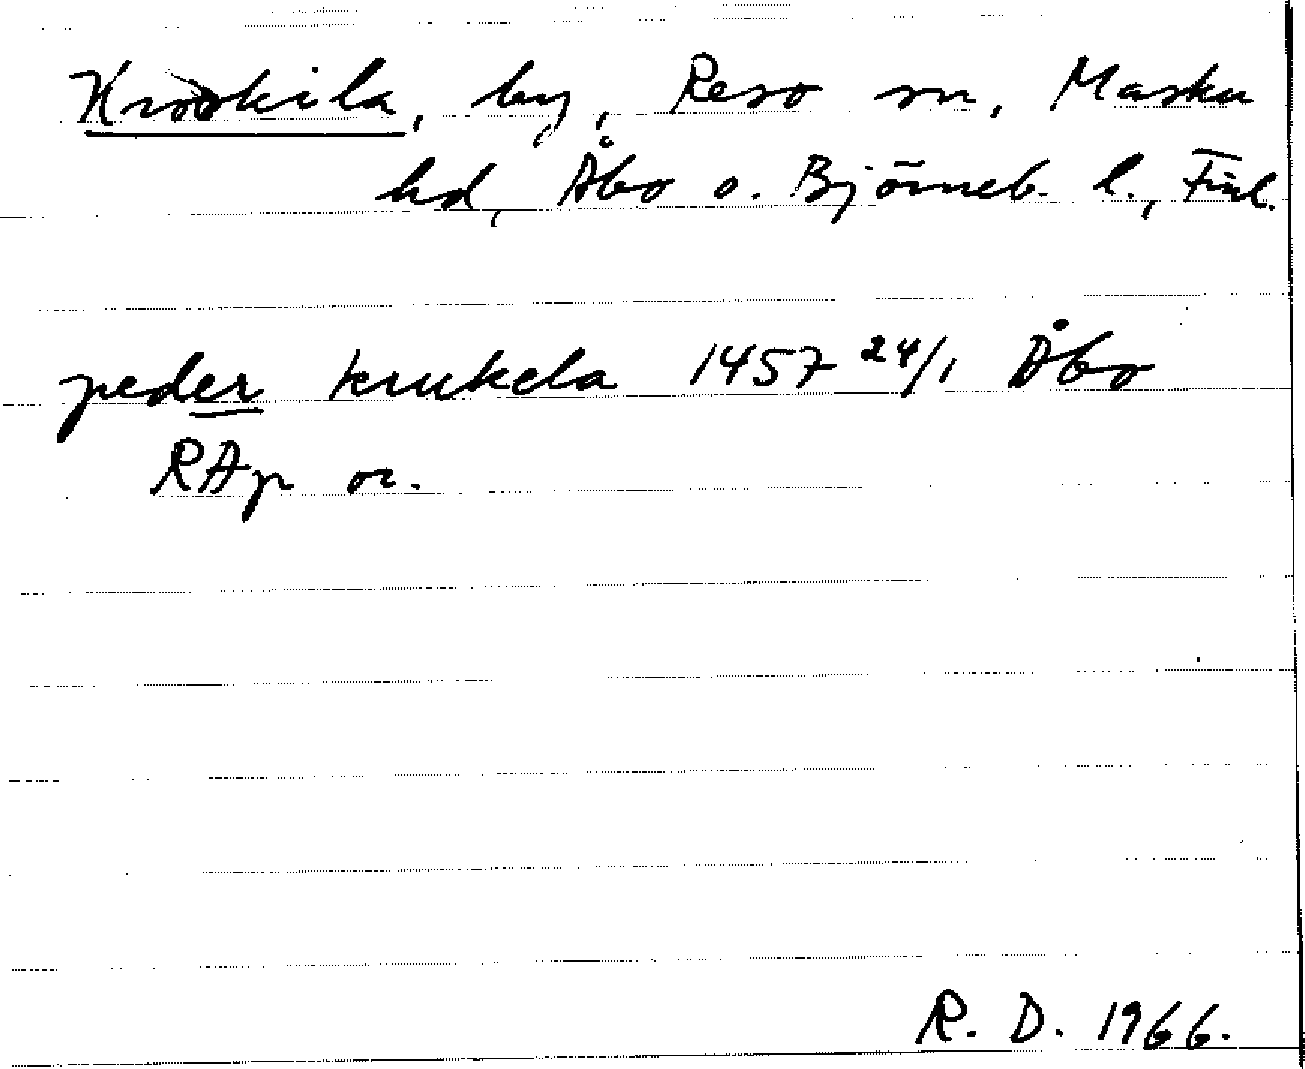 Krookila, by, Reso sn, Masku
hd, Åbo o. Björneb. l., Finl.
peder krukela 1457 24/1 Åbo
RAp or.
R. D. 1966.